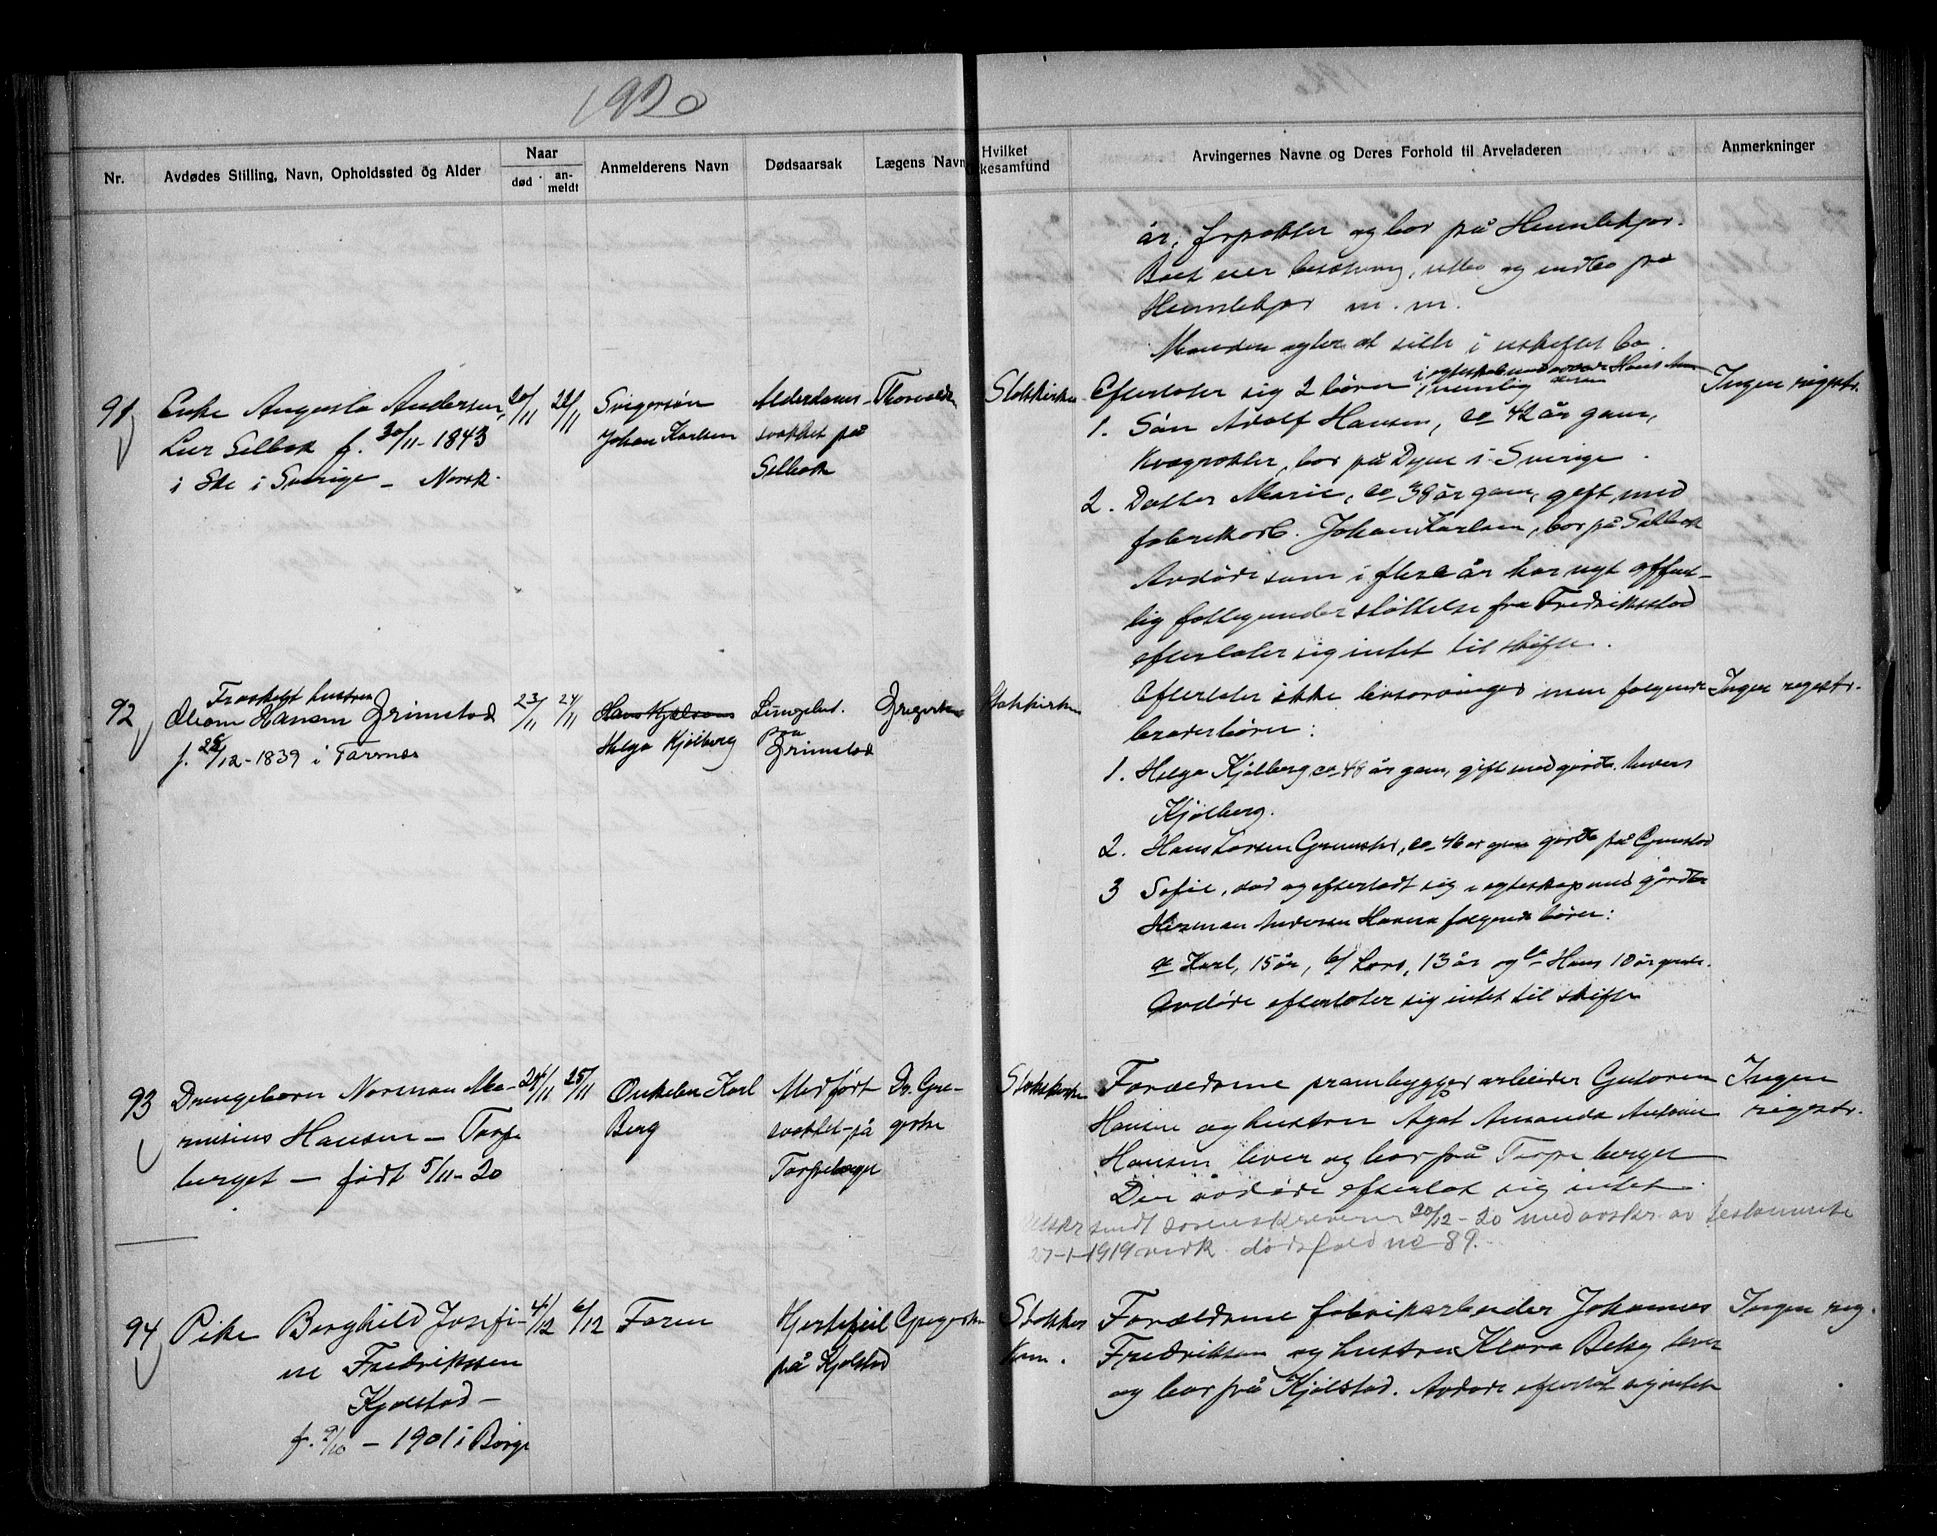 1920
Nr.
Avdødes Stilling, Navn, Opholdssted og Alder
Naar
død
an-
meldt
Anmelderens Navn
Dødsaarsak
Lægens Navn
Hvilket
kesamfund
Arvingernes Navne og Deres Forhold til Arveladeren
Anmerkninger
år, forpakter og bor på Humlekjær.
Boet eier besætning, utbo og indbo på
Humlekjær m. m.
Manden agter at sitte i uskiftet bo.
91
Enke Augusta Andersen,
Lur Selbak f. 30/11-1843
i Ske i Sverige - Norsk.
20/11
22/11
Svigersøn
Johan Karlsen
Alderdoms-
svakhet på
Selbak
Statskirken
Efterlater sig 2 børn nemlig
1. Søn Adolf Hansen, ca 42 år gam,
bor på Dyne i Sverige.
2. Datter Marie, ca 38 år gam, gift med
fabrikarb. Johan Karlsen, bor på Selbak
Avdøde som i flere år har nyt offent-
lig fattigunderstøttelse fra Fredriksstad
efterlater sig intet til skifte.
Ingen registr.
92
Fraskilt hustru
Hansen Grimstad
f. 28/12-1839 i Torsnes
23/11
24/11
Helga Kjølberg
Lungebet.
paa
Grimstad
Gregersen
Statskirken
Efterlater ikke livsarvinger men følgende
broderbørn:
1. Helga Kjølberg ca 48 år gam, gift med gårdb.
Kjølberg.
2. Hans Larsen Grimstad, ca 46 år gam gårdb på Grimstad
3 Sofie, død og efterlatt sig i egteskap med gårdbr
Herman Andersen følgende børn:
a Karl, 15 år, b/ Lars, 13 år og c Hans 10 år gam.
Avdøde efterlater sig intet til skifte
Ingen registr.
93
Drengebarn Norman Ma-
rinius Hansen - Torpe
berget - født 5/11-20
24/11
25/11
Onkelen Karl
Berg
Medfødt
svakhet på
Torpeberget
Dr. Gre-
gersen
Statskirken
Forældrene prambyggerarbeider Gustoren
Hansen og hustru Agat Amanda Antonie
Hansen, lever og bor på Torpeberget
Den avdøde efterlot sig intet.
Utskr sendt sorenskriveren 20/12-20 med avskr. av testamente
27-1-1919 vedk. dødsfald no 89.
Ingen
registr.
94
Pike Borghild Josefi-
ne Fredrikssen
Kjølstad -
f. 9/10 - 1901 i Borge
4/12
6/12
Faren
Hjertefeil
på Kjølstad
Gregersen
Statskir
ken.
Forældrene fabrikarbeider Johannes
Fredriksen og hustru Klara Betsy lever
og bor på Kjølstad. Avdøde efterlot sig intet
Ingen reg.